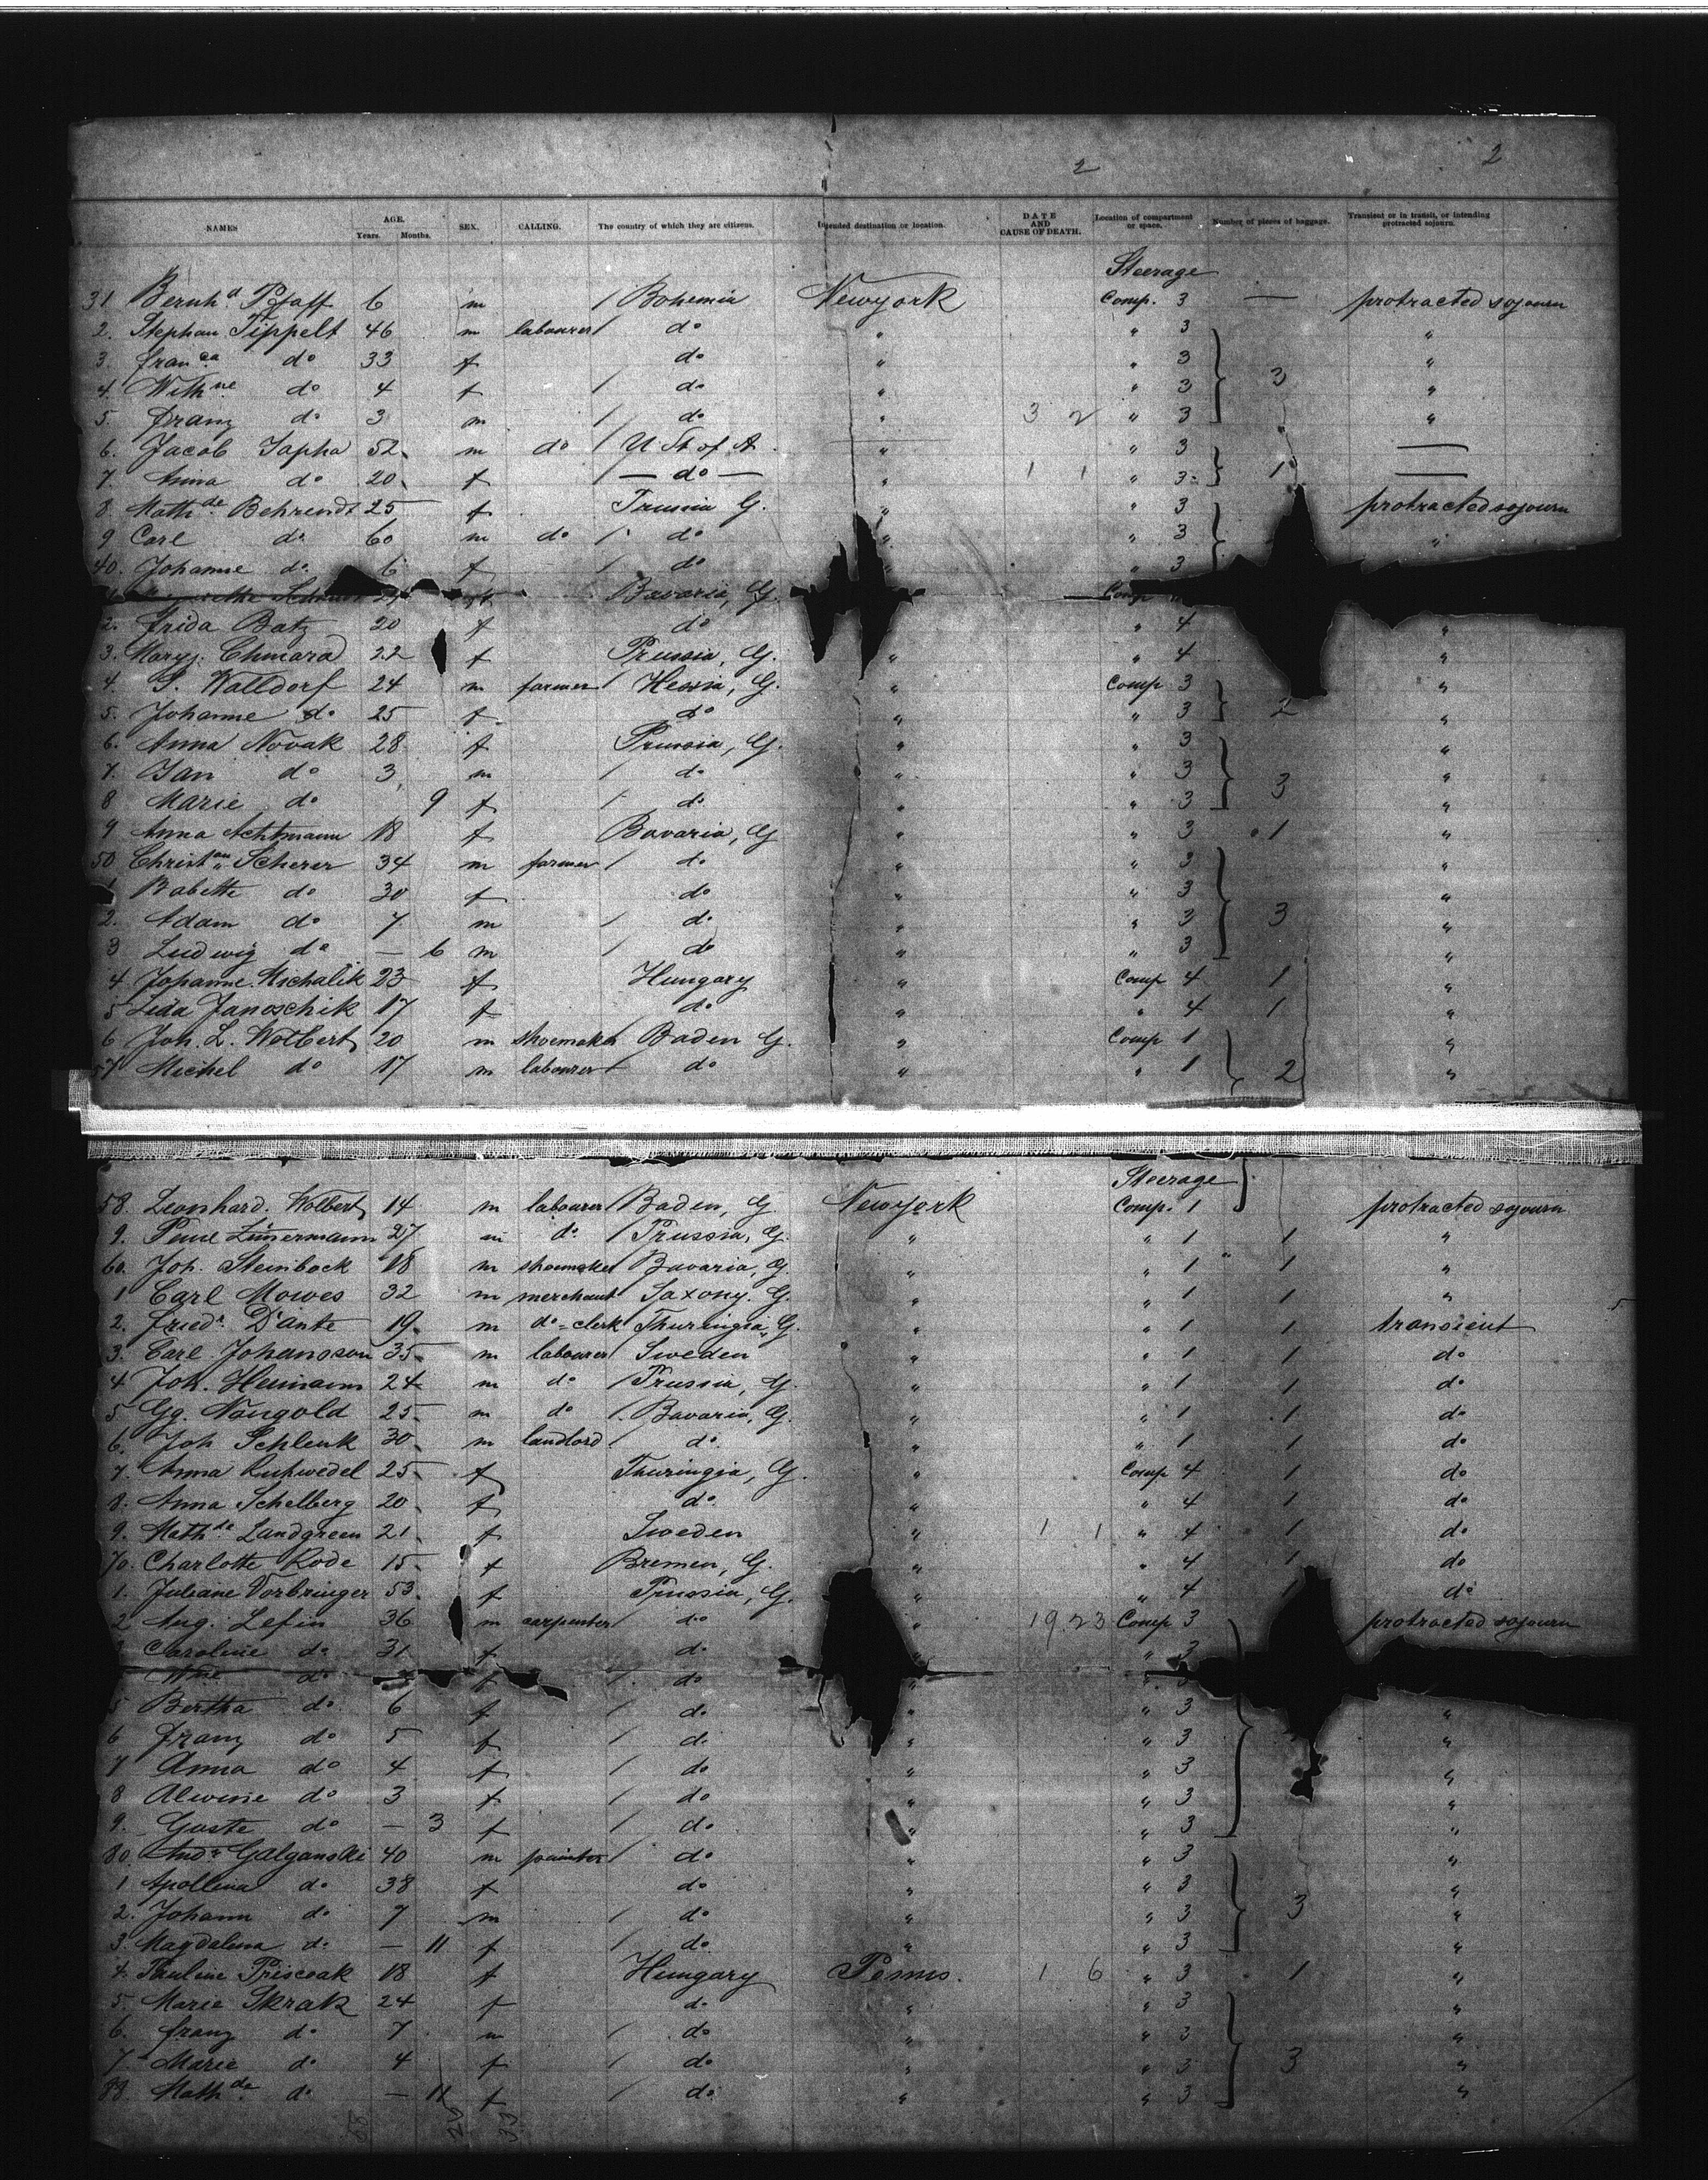 2 2
NAMES AGE. Years. Months. SEX. CALLING. The country of which they are citizens. Intended destination or location. DATE AND CAUSE OF DEATH. Location of compartment or space. Number of pieces of baggage. Transient or in transit, or intending protracted sojourn.
Steerage
31 Bernhd Pfaff 6 m / Bohemia Newyork Comp. 3 — protracted sojourn
2. Stephan Tippelt 46 m labourer / do " " 3 "
3. Franca do 33 f do " " 3 "
4. Withne do 4 f / do " " 3 3 "
5. Franz do 3 m / do " 3 2 " 3 "
6. Jacob Japha 52 m do / U. St. of A. " " 3 —
7. Anna do 20 f / — do — " 1 1 " 3 1 —
8 Mathde Behrendt 25 f Prussia G. " " 3 protracted sojourn
9 Carl do 60 m do / do " " 3 "
40. Johanne do 6 f / do " 3
Bavaria, G. Comp
2. Frida Batz 20 f do " 4 "
3. Maryj. Chmara 22 f Prussia, G. " " 4 "
4. S. Walldorf 24 m farmer / Hessia, G. " Comp 3 "
5. Johanne do 25 f do " " 3 2 "
6. Anna Novak 28 f Prussia, G. " " 3 "
7. Jan do 3 m / do " " 3 3 "
8 Marie do 9 f / do " " 3 "
9 Anna Achtmann 18 f Bavaria, G " " 3 1 "
50 Christan Scherer 34 m farmer / do " " 3 "
1 Babette do 30 f do " " 3 "
2. Adam do 7 m / do " " 3 3 "
3 Ludwig do — 6 m / do " " 3 "
4 Johanne Michalik 23 f Hungary " Comp 4 1 "
5 Lida Janoschik 17 f do " " 4 1 "
6 Joh. L. Wolbert 20 m shoemaker Baden G. " Comp 1 "
57 Michel do 17 m labourer / do " " 1 2 "
Steerage
58. Leonhard Wolbert 14 m labourer / Baden, G Newyork Comp. 1 protracted sojourn
9. Zimermann 27 m do / Prussia, G. " " 1 1 "
60. Joh. Steinbock 18 m shoemaker Bavaria, G. " " 1 1 "
1 Carl Mowes 32 m merchant Saxony. G. " " 1 1 "
2. Friedr. D'Ante 19 m do - clerk Thuringia, G. " " 1 1 transient
3. Carl Johansson 35 m labourer Sweden " " 1 1 do
4 Joh. Heimann 24 m do / Prussia, G. " " 1 1 do
5 Gg. Nangold 25 m do / Bavaria, G. " " 1 1 do
6. Joh Schlenk 30 m landlord / do " " 1 1 do
7. Anna Ruhwedel 25 f Thuringia, G. " Comp 4 1 do
8. Anna Schelberg 20 f do " " 4 1 do
9. Mathde Landgreen 21 f Sweden " 1 1 " 4 1 do
70. Charlotte Rode 15 f Bremen, G. " " 4 1 do
1. Juliane Vorbringer 53 f Prussia, G. " " 4 1 do
2 Aug. Lefin 36 m carpenter / do " 19 23 Comp 3 protracted sojourn
3 Caroline do 31 f do " 3
do f / do "
5 Bertha do 6 f / do " " 3 "
6 Franz do 5 f / do " " 3 "
7 Anna do 4 f / do " " 3 "
8 Alwine do 3 f / do " " 3 "
9. Guste do — 3 f / do " " 3 "
80. Andr. Galganski 40 m painter / do " " 3 "
1 Apollina do 38 f do " " 3 "
2. Johann do 7 m / do " " 3 3 "
3. Magdalena do — 11 f / do " " 3 "
4. Pauline Priscoak 18 f Hungary Penns. 1 6 " 3 1 "
5. Marie Skrak 24 f do " " 3 "
6. Franz do 7 m / do " " 3 "
7. Marie do 4 f / do " " 3 3 "
88. Mathde do — 11 f / do " " 3 "